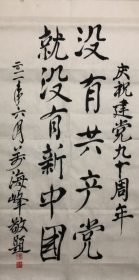 庆祝建党九十周年
没有共产党
就没有新中国
二〇一一年六月万海峰敬题